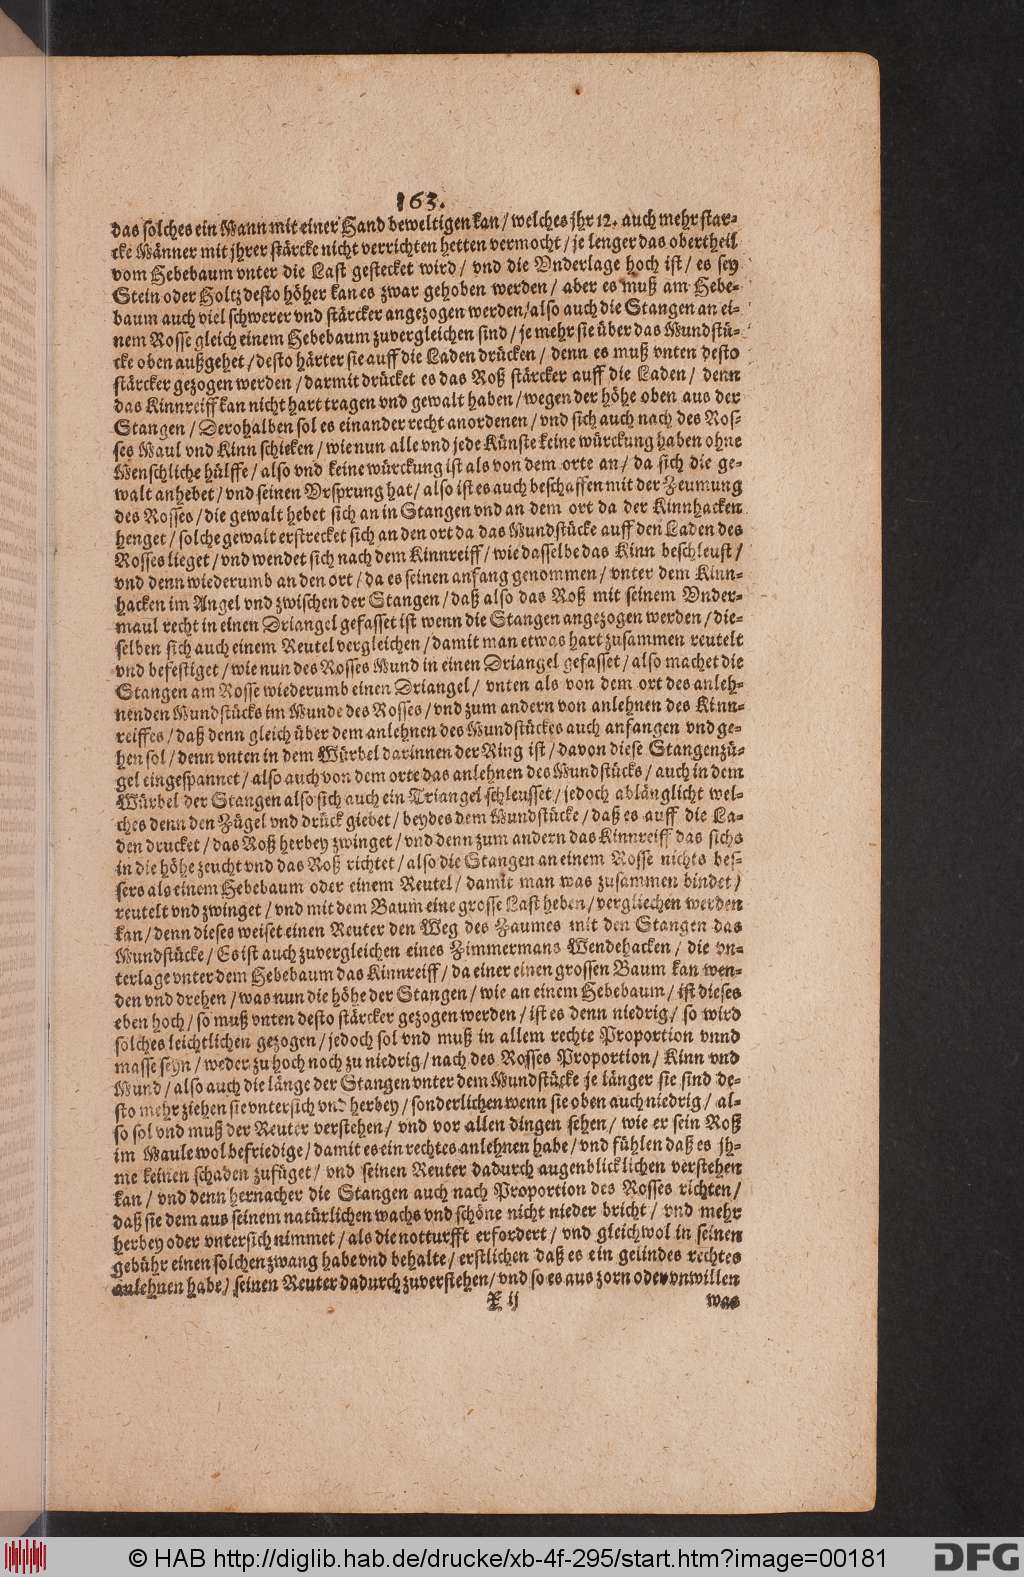 163.
das solches ein Mann mit einer Hand beweltigen kan / welches jhr 12. auch mehr star-
cke Männer mit jhrer stärcke nicht verrichten hetten vermocht / je lenger das obertheil
vom Hebebaum vnter die Last gestecket wird / vnd die Vnderlage hoch ist / es sey
Stein oder Holtz desto höher kan es zwar gehoben werden / aber es muß am Hebe-
baum auch viel schwerer vnd stärcker angezogen werden / also auch die Stangen an ei-
nem Rosse gleich einem Hebebaum zuvergleichen sind / je mehr sie über das Mundstü-
cke oben außgehet / desto härter sie auff die Laden drücken / denn es muß vnten desto
stärcker gezogen werden / darmit drücket es das Roß stärcker auff die Laden / denn
das Kinnreiff kan nicht hart tragen vnd gewalt haben / wegen der höhe oben aus der
Stangen / Derohalben sol es einander recht anordenen / vnd sich auch nach des Ros-
ses Maul vnd Kinn schicken / wie nun alle vnd jede Künste keine würckung haben ohne
Menschliche hülffe / also vnd keine würckung ist als von dem orte an / da sich die ge-
walt anhebet / vnd seinen Vrsprung hat / also ist es auch beschaffen mit der Zeumung
des Rosses / die gewalt hebet sich an in Stangen vnd an dem ort da der Kinnhacken
henget / solche gewalt erstrecket sich an den ort da das Mundstücke auff den Laden des
Rosses lieget / vnd wendet sich nach dem Kinnreiff / wie dasselbe das Kinn beschleust /
vnd denn wiederumb an den ort / da es seinen anfang genommen / vnter dem Kinn-
hacken im Angel vnd zwischen der Stangen / daß also das Roß mit seinem Vnder-
maul recht in einen Driangel gefasset ist wenn die Stangen angezogen werden / die-
selben sich auch einem Reutel vergleichen / damit man etwas hart zusammen reutelt
vnd befestiget / wie nun des Rosses Mund in einen Driangel gefasset / also machet die
Stangen am Rosse wiederumb einen Driangel / vnten als von dem ort des anleh-
nenden Mundstücks im Munde des Rosses / vnd zum andern von anlehnen des Kinn-
reiffes / daß denn gleich über dem anlehnen des Mundstückes auch anfangen vnd ge-
hen sol / denn vnten in dem Würbel darinnen der Ring ist / davon diese Stangenzü-
gel eingespannet / also auch von dem orte das anlehnen des Mundstücks / auch in dem
Würbel der Stangen also sich auch ein Triangel schleusset / jedoch ablänglicht wel-
ches denn den Zügel vnd drück giebet / beydes dem Mundstücke / daß es auff die La-
den drucket / das Roß herbey zwinget / vnd denn zum andern das Kinnreiff das sichs
in die höhe zeucht vnd das Roß richtet / also die Stangen an einem Rosse nichts bes-
sers als einem Hebebaum oder einem Reutel / damit man was zusammen bindet /
reutelt vnd zwinget / vnd mit dem Baum eine grosse Last heben / vergliechen werden
kan / denn dieses weiset einen Reuter den Weg des Zaumes mit den Stangen das
Mundstücke / Es ist auch zuvergleichen eines Zimmermans Wendehacken / die vn-
terlage vnter dem Hebebaum das Kinnreiff / da einer einen grossen Baum kan wen-
den vnd drehen / was nun die höhe der Stangen / wie an einem Hebebaum / ist dieses
eben hoch / so muß vnten desto stärcker gezogen werden / ist es denn niedrig / so wird
solches leichtlichen gezogen / jedoch sol vnd muß in allem rechte Proportion vnnd
masse seyn / weder zu hoch noch zu niedrig / nach des Rosses Proportion / Kinn vnd
Mund / also auch die länge der Stangen vnter dem Mundstücke je länger sie sind de-
sto mehr ziehen sie vntersich vnd herbey / sonderlichen wenn sie oben auch niedrig / al-
so sol vnd muß der Reuter verstehen / vnd vor allen dingen sehen / wie er sein Roß
im Maule wol befriedige / damit es ein rechtes anlehnen habe / vnd fühlen daß es jh-
me keinen schaden zufüget / vnd seinen Reuter dadurch augenblicklichen verstehen
kan / vnd denn hernacher die Stangen auch nach Proportion des Rosses richten /
daß sie dem aus seinem natürlichen wachs vnd schöne nicht nieder bricht / vnd mehr
herbey oder vntersich nimmet / als die notturfft erfordert / vnd gleichwol in seinen
gebühr einen solchen zwang habe vnd behalte / erstlichen daß es ein gelindes rechtes
anlehnen habe / seinen Reuter dadurch zuverstehen / vnd so es aus zorn oder vnwillen
X ij was
© HAB http://diglib.hab.de/drucke/xb-4f-295/start.htm?image=00181
DFG